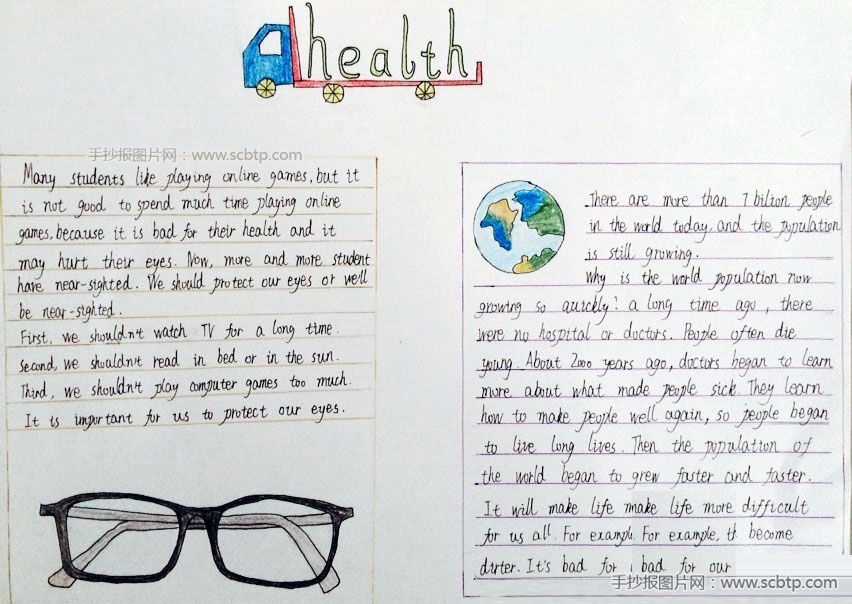 health
手抄报图片网：www.scbtp.com
Many students like playing online games, but it
is not good to spend much time playing online
games, because it is bad for their health and it
may hurt their eyes. Now, more and more student
have near-sighted. We should protect our eyes or we'll
be near-sighted.
First, we shouldn't watch TV for a long time.
Second, we shouldn't read in bed or in the sun.
Third, we shouldn't play computer games too much.
It is important for us to protect our eyes.
There are more than 7 bilion people
in the world today, and the population
is still growing.
Why is the world population now
growing so quickly? a long time ago, there
were no hospital or doctors. People often die
young. About 2000 years ago, doctors began to learn
more about what made people sick. They learn
how to make people well again, so people began
to live long lives. Then the population of
the world began to grew faster and faster.
It will make life make life more difficult
for us all. For example. For example, th become
dirter. It's bad for bad for our
手抄报图片网：www.scbtp.com